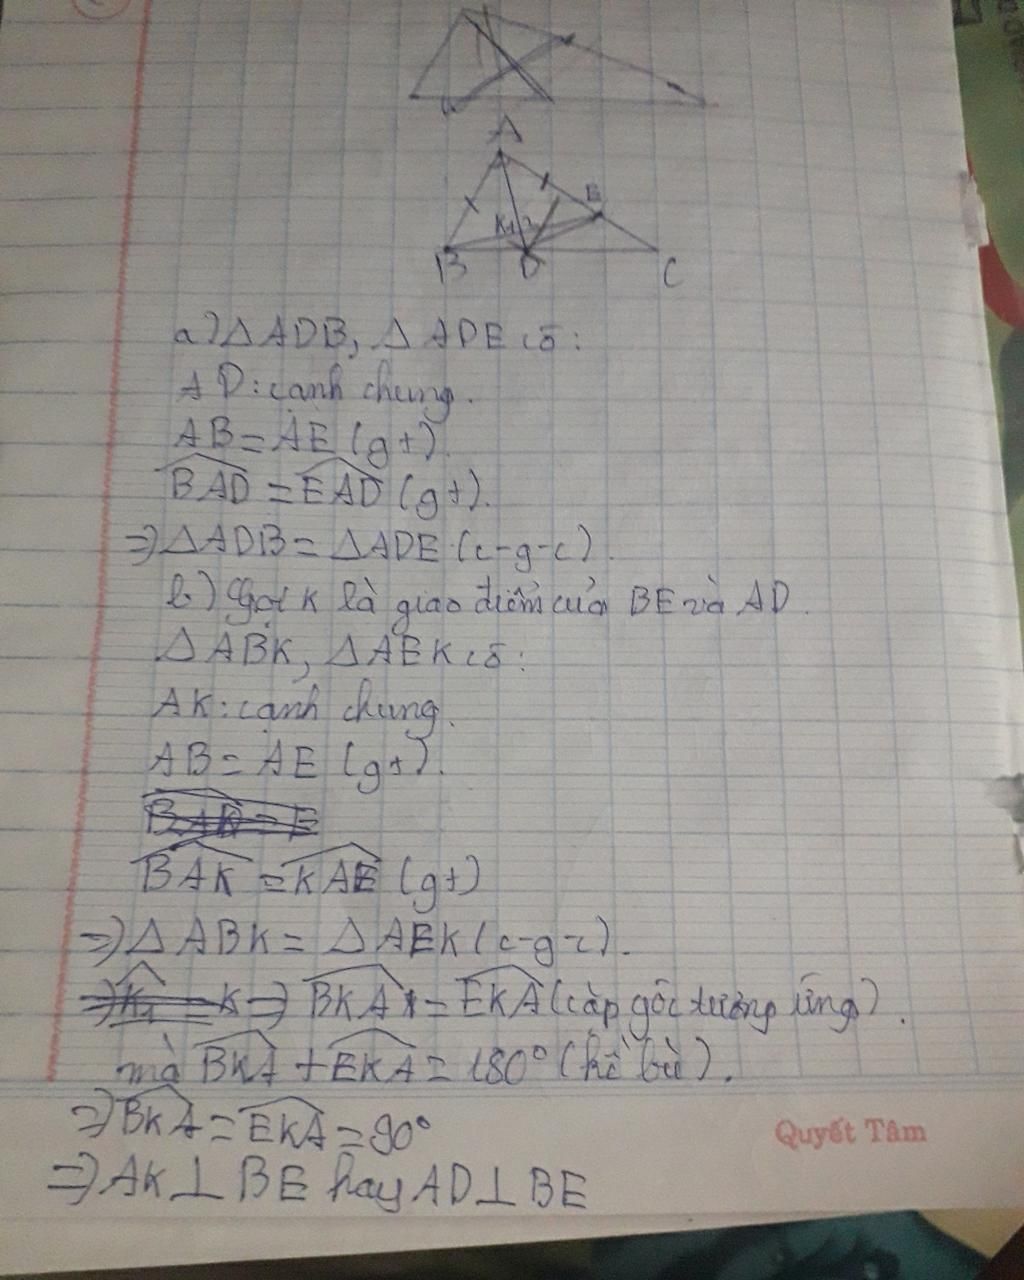 A
E
K1 2
B D C
a) △ADB, △ADE có:
AD: cạnh chung.
AB = AE (gt).
BAD = EAD (gt).
=> △ADB = △ADE (c-g-c).
b) Gọi K là giao điểm của BE và AD.
△ABK, △AEK có:
AK: cạnh chung.
AB = AE (gt).
BAK = KAE (gt)
=> △ABK = △AEK (c-g-c).
=> BKA = EKA (cặp góc tương ứng).
mà BKA + EKA = 180° (kề bù).
=> BKA = EKA = 90°
Quyết Tâm
=> AK ⊥ BE hay AD ⊥ BE